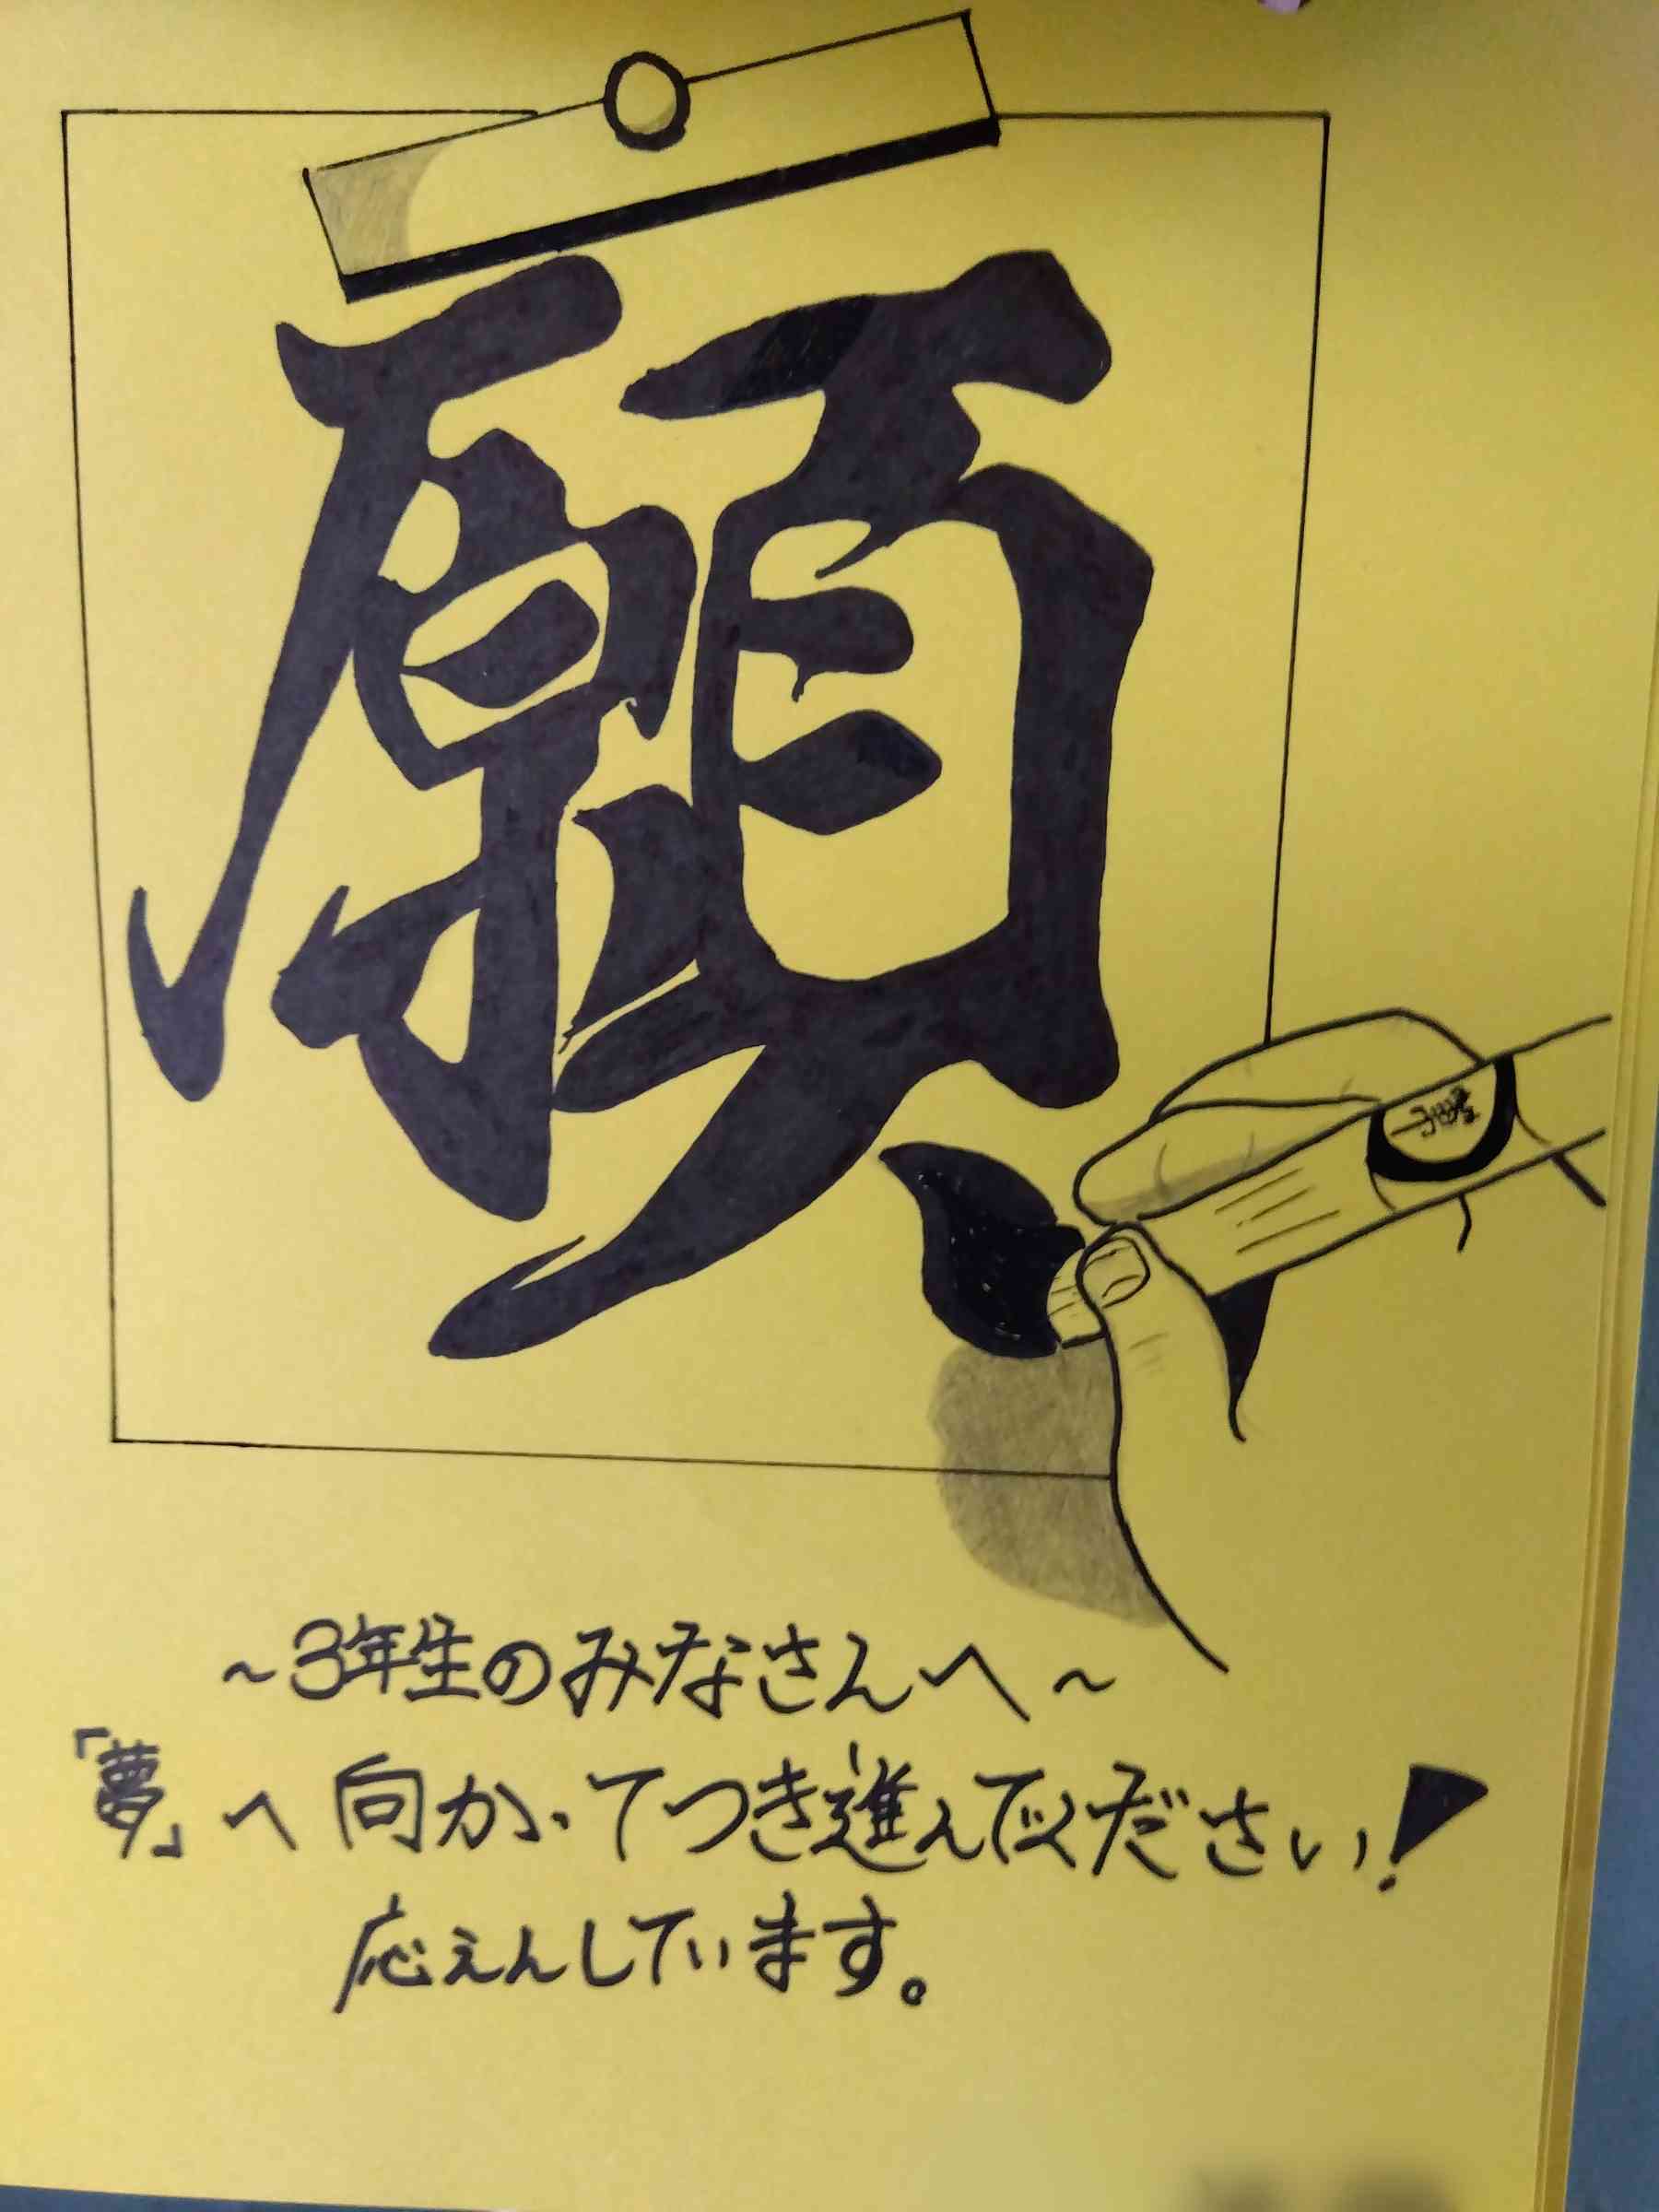 願
～3年生のみなさんへ～
「夢」へ向かってつき進んでください！
応えんしています。